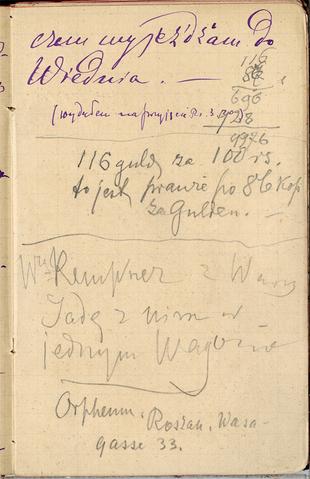 czem wyjeżdżam do
Wiednia. —
116
86
696
928
9976
(wydałem na przyjęcie Rs. 3
116 guld za 100 rs.
to jest prawie po 86 Kop
za Gulden. —
Kempner z Warsz
Jadę z nim w
jednym Wagonie
Orpheum. Roszan. Wasa-
gasse 33.